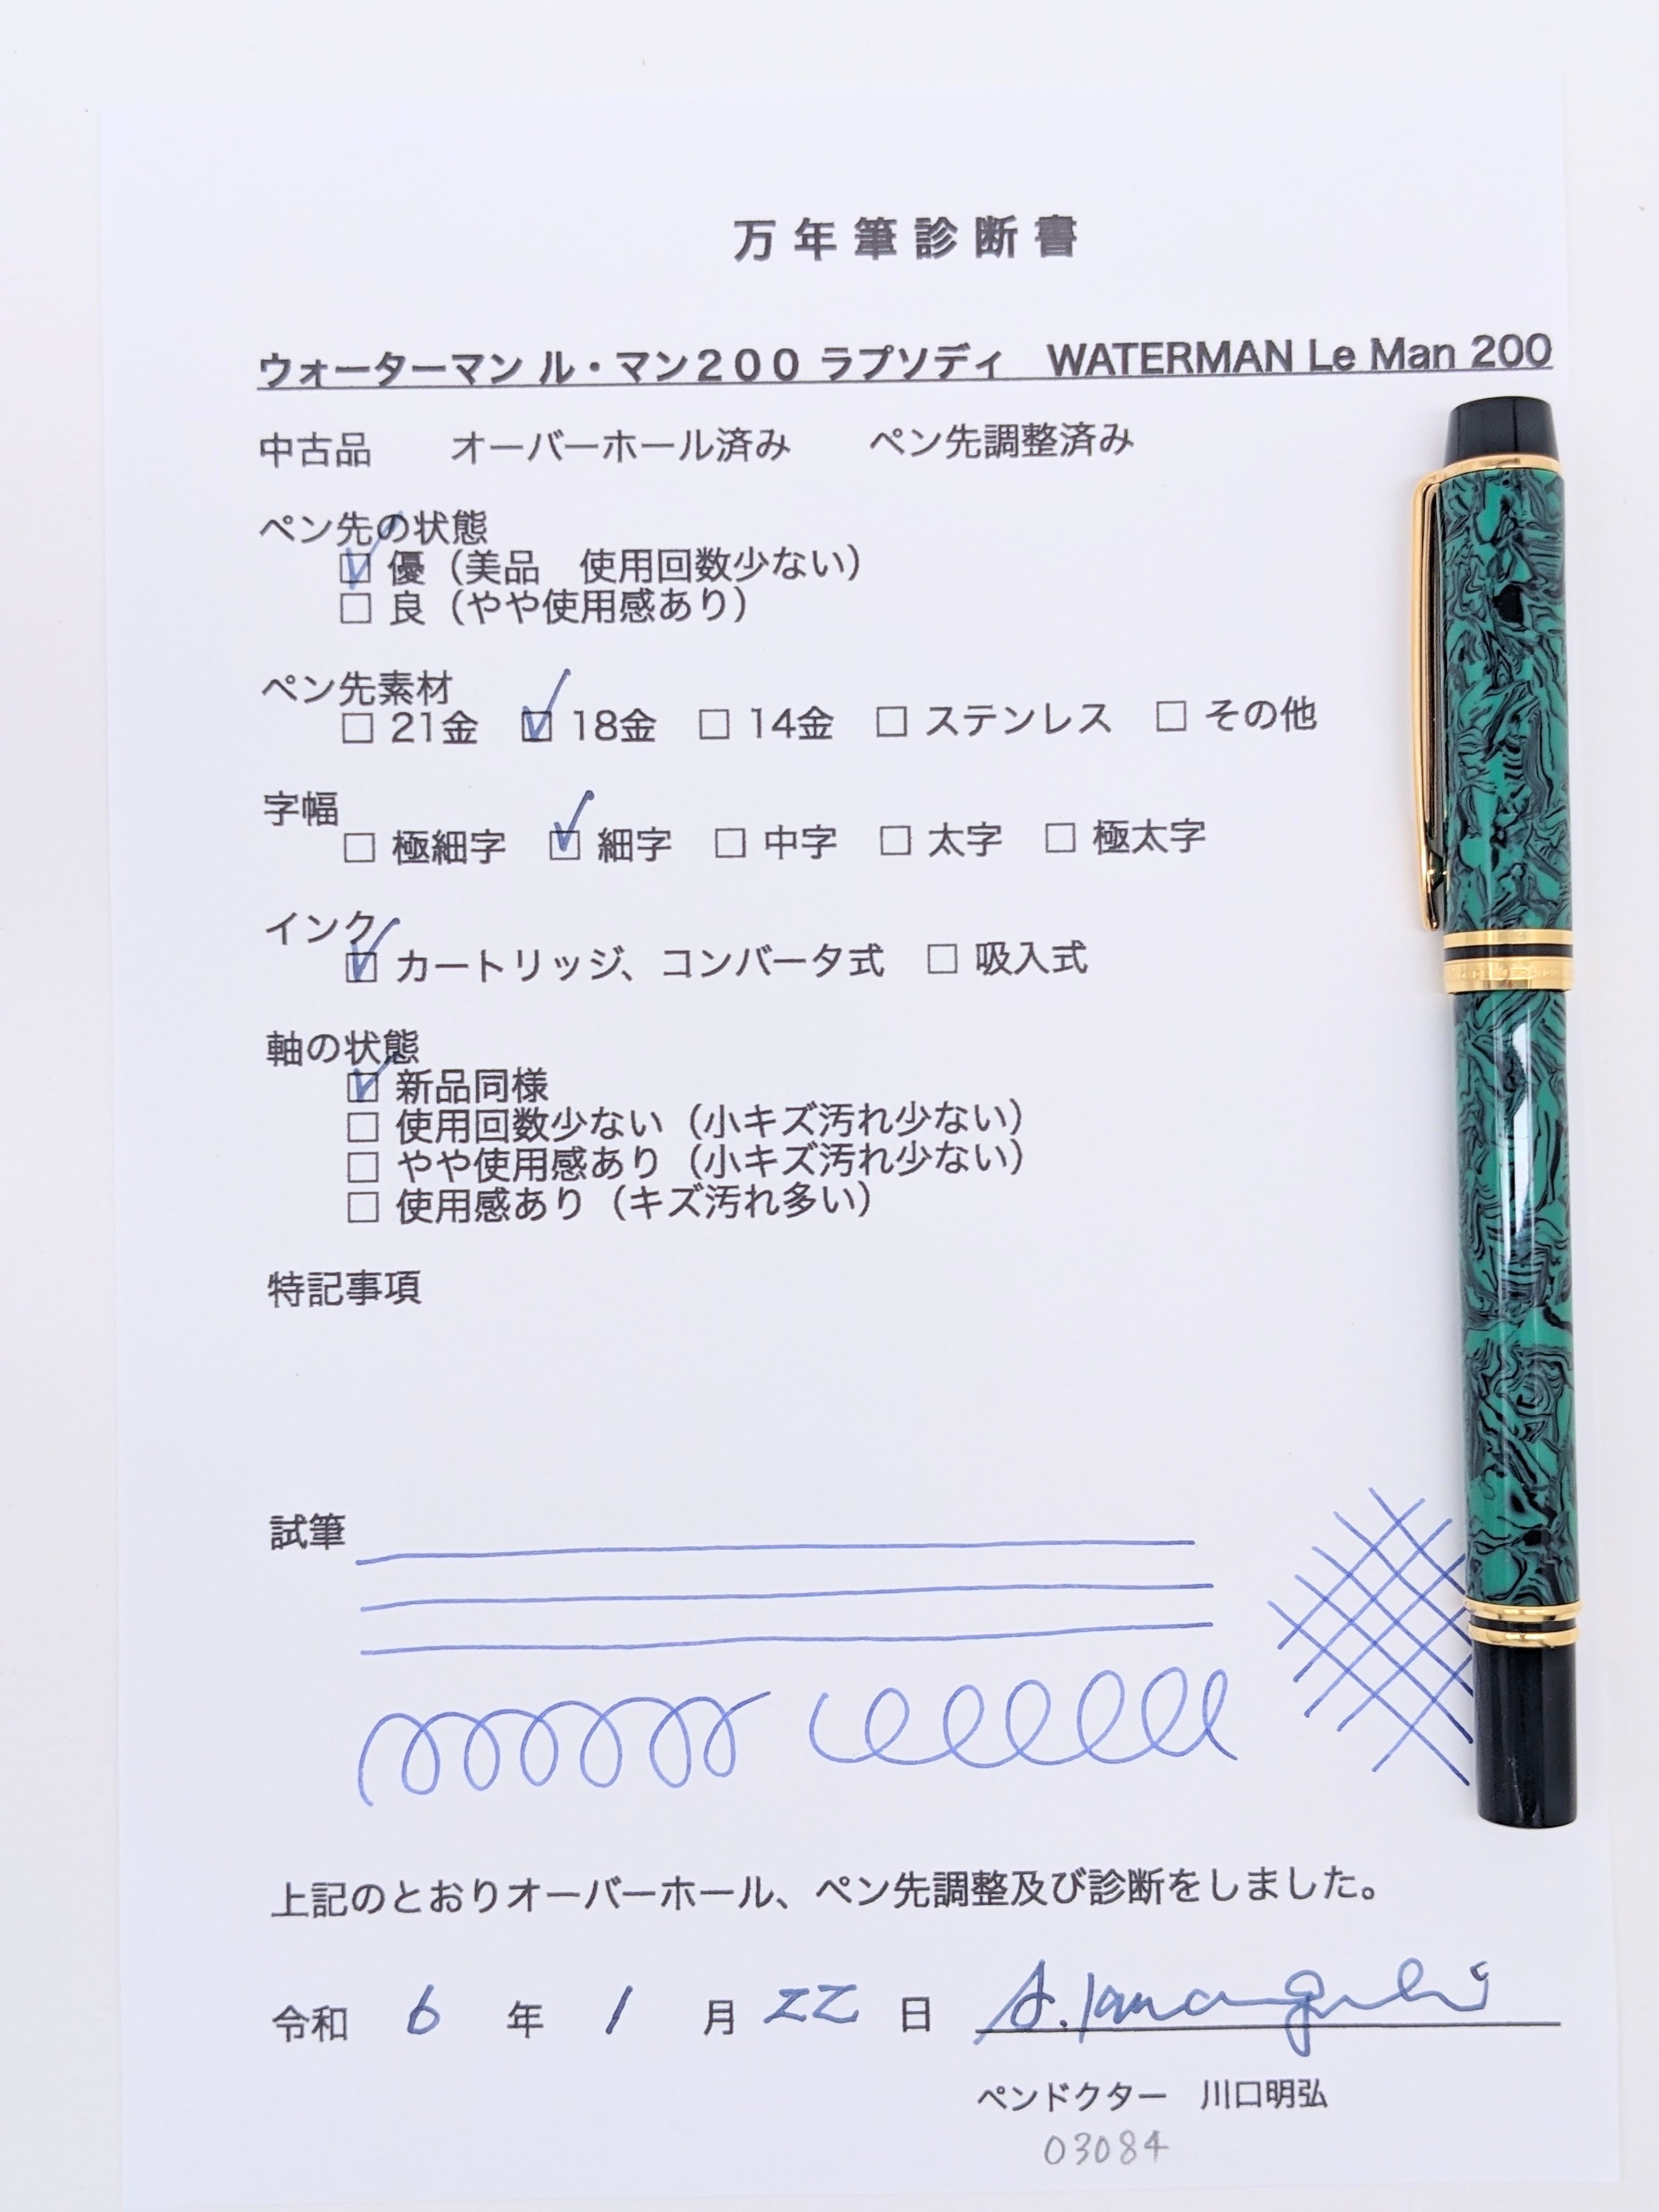 万年筆診断書
ウォーターマン ル・マン２００ ラプソディ　WATERMAN Le Man 200
中古品　　オーバーホール済み　　ペン先調整済み
ペン先の状態
☑ 優（美品　使用回数少ない）
□ 良（やや使用感あり）
ペン先素材
□ 21金　☑ 18金　□ 14金　□ ステンレス　□ その他
字幅
□ 極細字　☑ 細字　□ 中字　□ 太字　□ 極太字
インク
☑ カートリッジ、コンバータ式　□ 吸入式
軸の状態
☑ 新品同様
□ 使用回数少ない（小キズ汚れ少ない）
□ やや使用感あり（小キズ汚れ少ない）
□ 使用感あり（キズ汚れ多い）
特記事項
試筆
上記のとおりオーバーホール、ペン先調整及び診断をしました。
令和 6 年 1 月 22 日
ペンドクター　川口明弘
03084